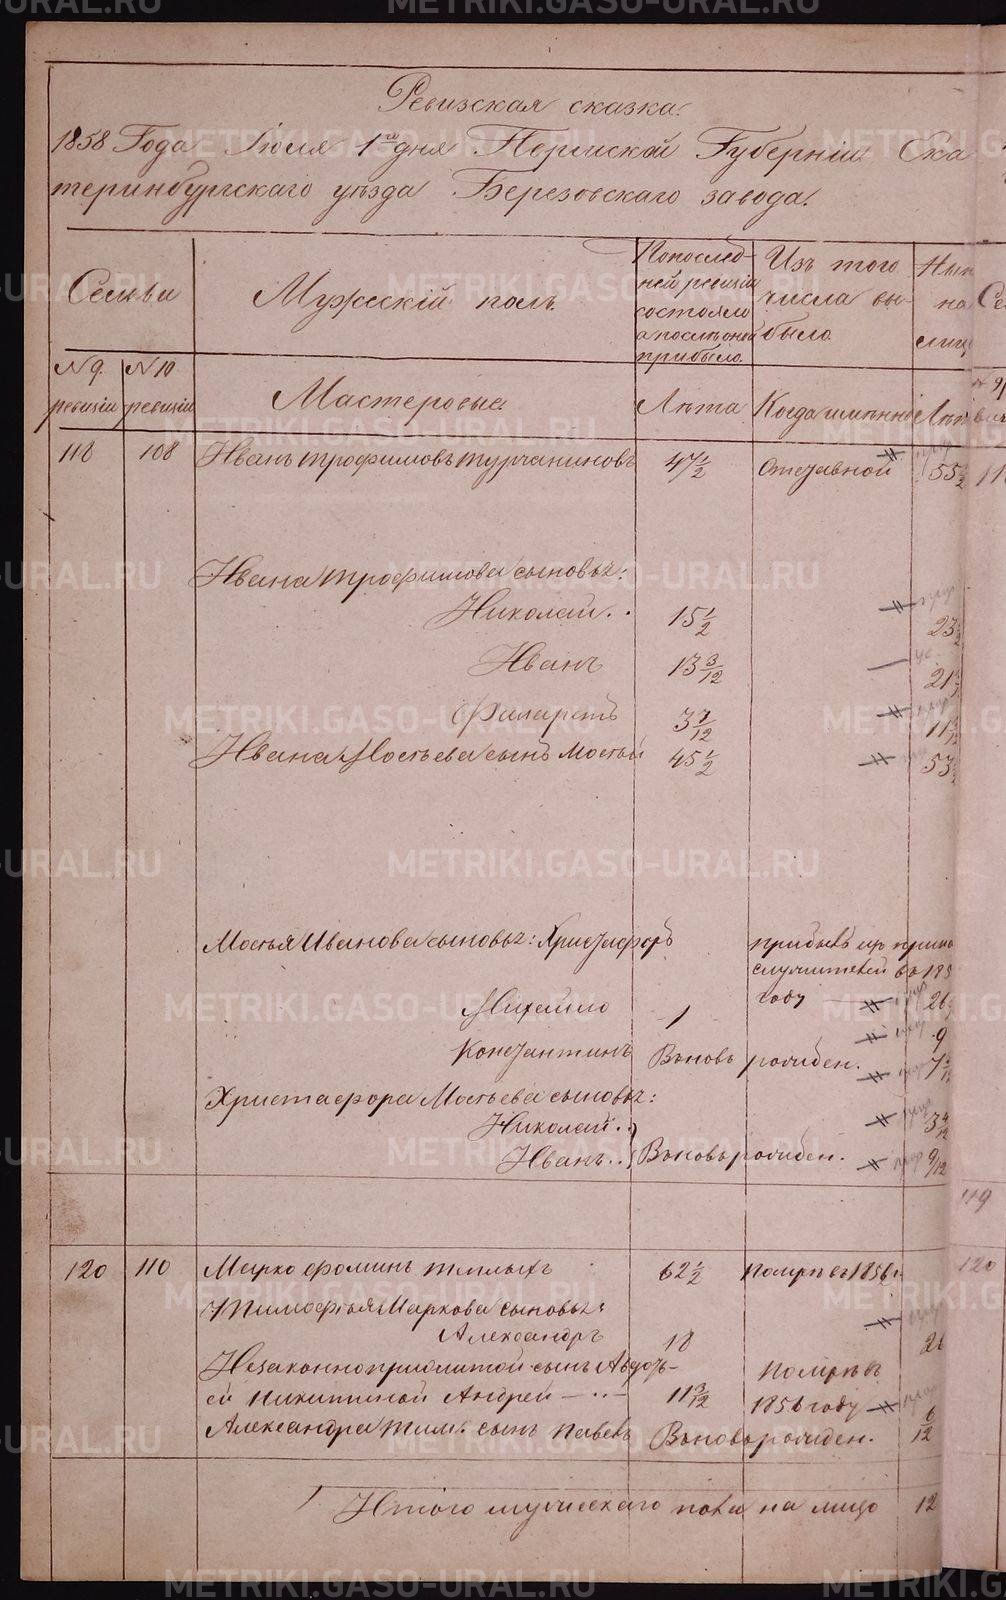 Ревизская сказка.
1858 Года Іюля 1го дня Пермской Губерніи Ека
теринбургскаго уѣзда Березовскаго завода.
Семьи
Мужескій полъ.
По послед-
ней ревизіи
состояло
а после оной
прибыло.
Изъ того
числа вы-
было.
Нын
на
лиц
№ 9. ревизіи
№ 10 ревизіи
Мастеровые.
Лѣта
Когда именно
Лѣт
118 108 Иванъ Трофимовъ Турчаниновъ 47 1/2 Отставной 55 1/2
Ивана Трофимова сыновья:
Николай.. 15 1/2 23 1/2
Иванъ 13 3/12 21 3/12
Филаретъ 3 7/12 11
Ивана сынъ 45 1/2 53 1/2
Иванова сыновья: Христофоръ прибылъ изъ
служителей въ 185
году 26
Михайло 1 9
Константинъ Вновь рожден. 7
Христофора сыновья:
Николай.. 3 4/12
Иванъ.. Вновь рожден. 9/12
119
120 110 Марко Фоминъ Теплыхъ 62 1/2 Помръ въ 1856 г
Тимофея Маркова сыновья:
Александръ 18 26
Незаконноприжитой сынъ Авдоть-
ей Никитиной Андрей 11 3/12 Помръ въ
1856 году
Александра Тим. сынъ Павелъ Вновь рожден. 6/12
Итого мужескаго пола на лицо 12
METRIKI.GASO-URAL.RU